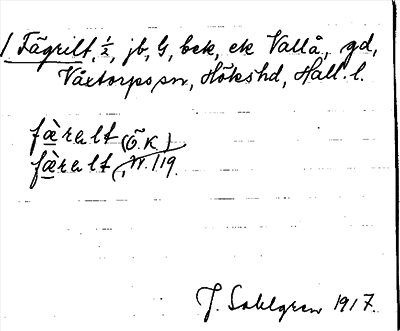 1 Fägrilt, ½, jb, G, bek, ek Vallå, gd,
Våxtorps sn, Höks hd, Hall. l.
fæ̀ralt (Ö.K)
fæ̀ralt 119.
J. Sahlgren 1917.